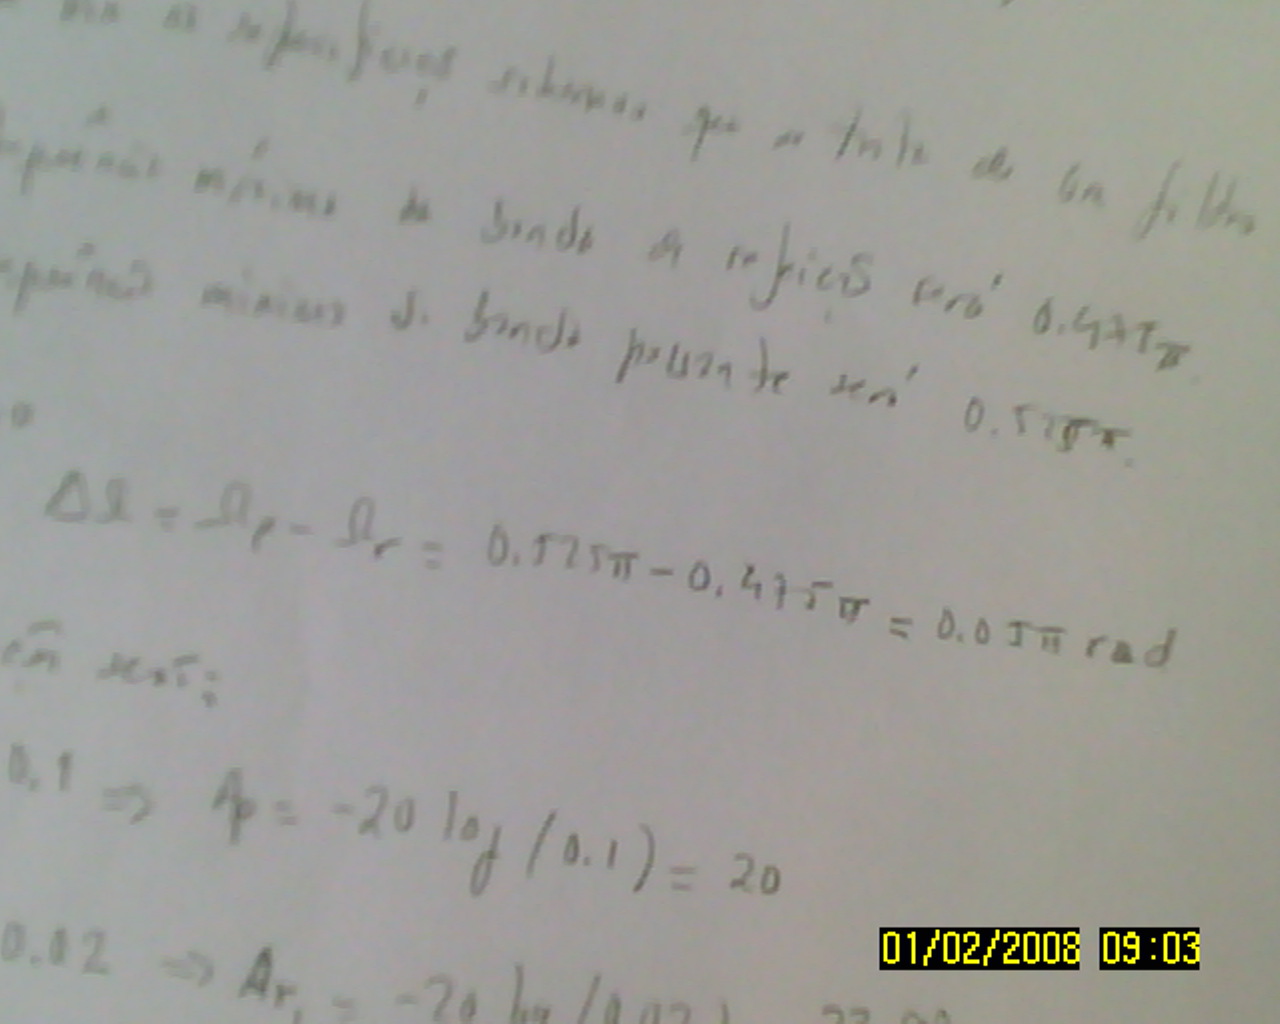 as especificações sabemos que se trata de um filtro
frequência máxima da banda de rejeição será 0.475π
frequência mínima da banda passante será 0.525π.
ΔΩ = Ωp - Ωr = 0.525π - 0.475π = 0.05π rad
0.1 ⇒ Ap = -20 log (0.1) = 20
0.02 ⇒ Ar = -20 log (0.02)
01/02/2008 09:03